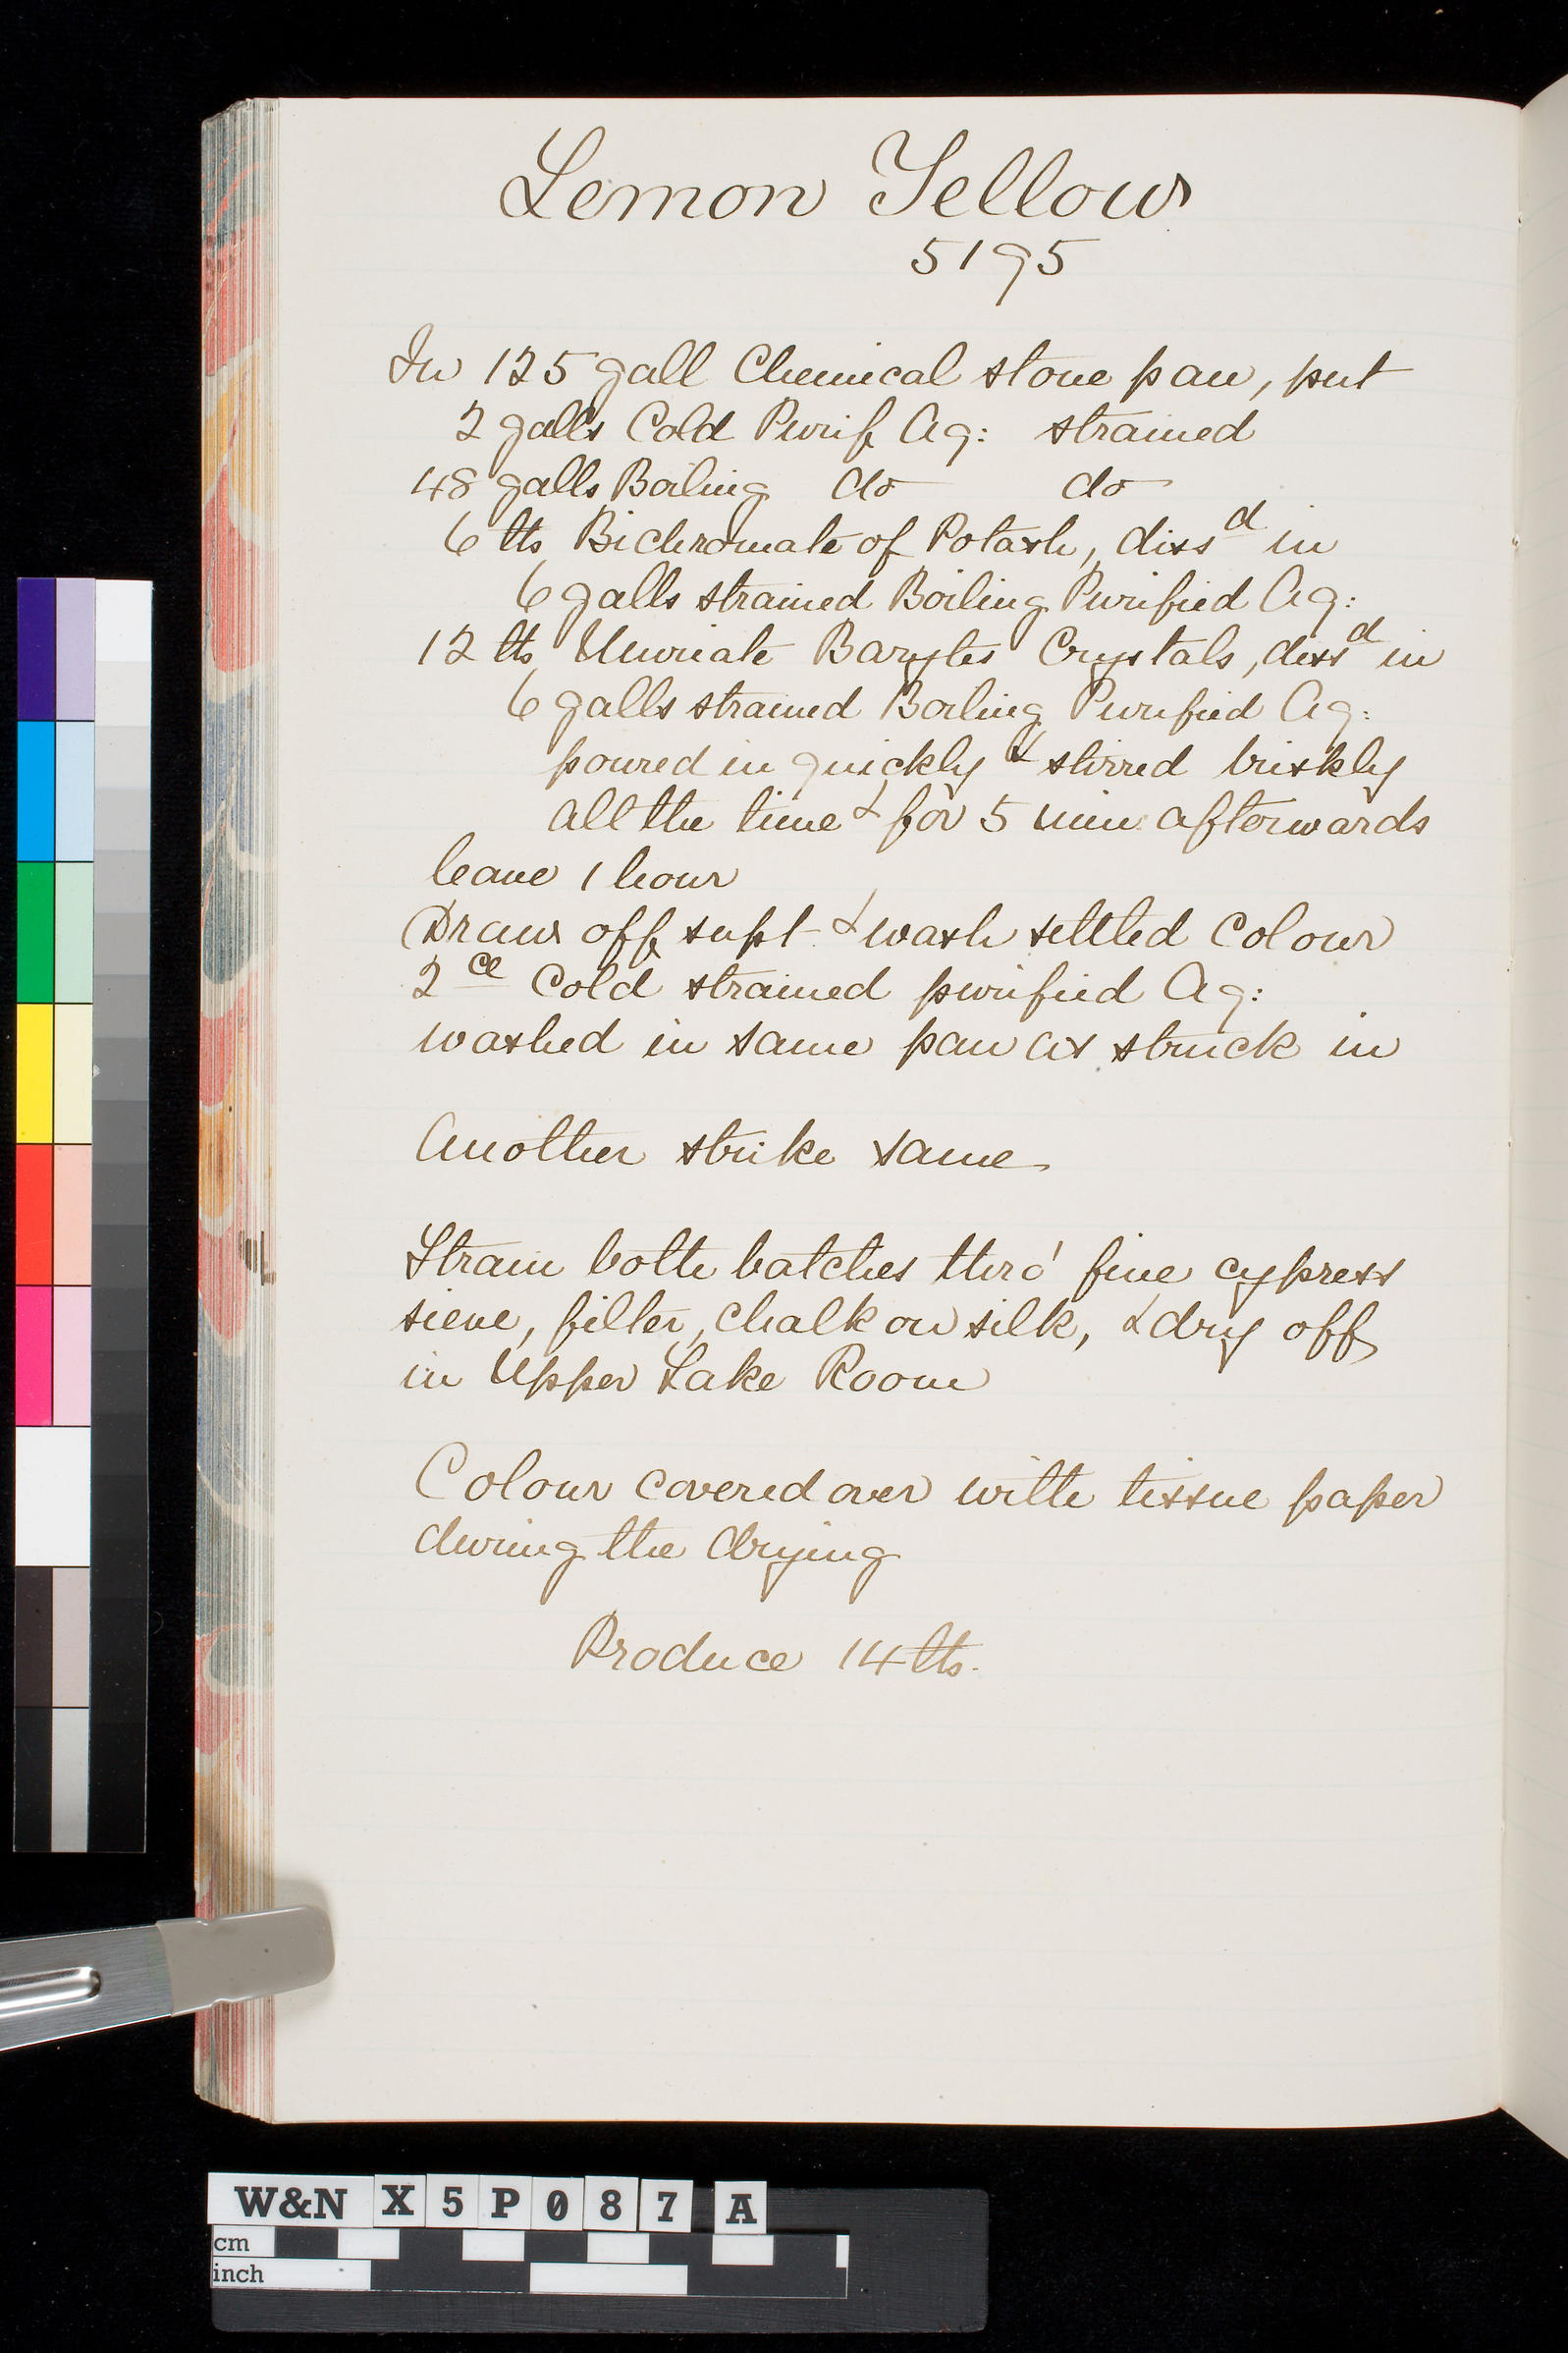 Lemon Yellow
5195
In 125 gall Chemical stone pan, put
2 galls Cold Purif Aq: strained
48 galls Boiling do do
6 lbs Bichromate of Potash, dissd in
6 galls strained Boiling Purified Aq:
12 lbs Muriate Barytes Crystals, dissd in
6 galls strained Boiling Purified Aq:
poured in quickly & stirred briskly
all the time & for 5 min afterwards
leave 1 hour
Draw off supt & wash settled Colour
2ce Cold strained purified Aq:
washed in same pan as struck in
Another strike same
Strain both batches thro' fine cypress
sieve, filter, chalk on silk, & dry off
in Upper Lake Room
Colour covered over with tissue paper
during the drying
Produce 14 lbs.
W&N X5P087 A
cm
inch